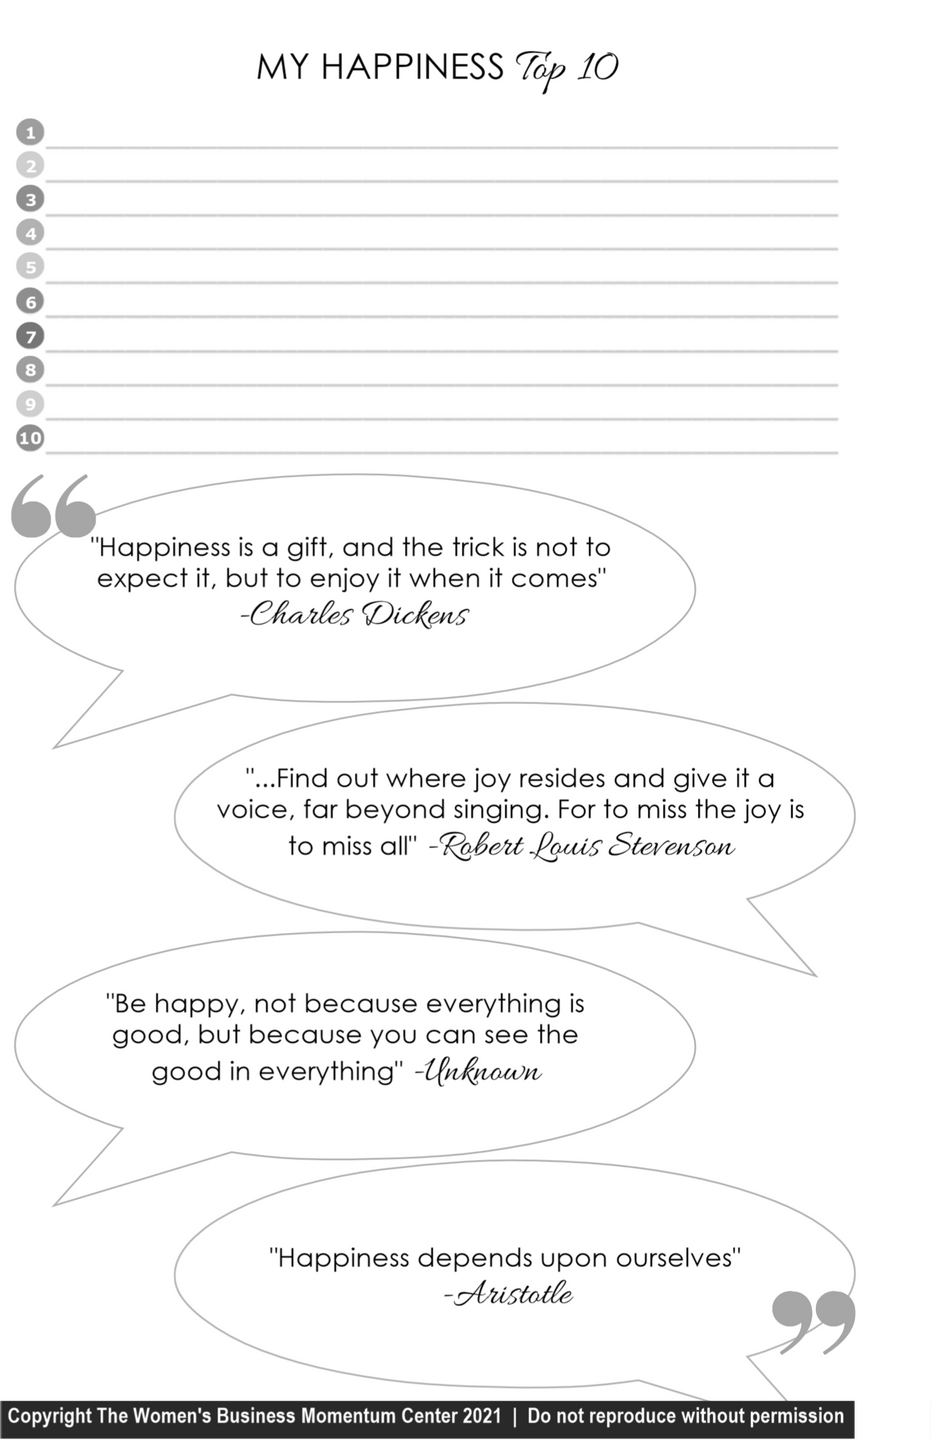 MY HAPPINESS Top 10
1
2
3
4
5
6
7
8
9
10
"Happiness is a gift, and the trick is not to
expect it, but to enjoy it when it comes"
-Charles Dickens
"...Find out where joy resides and give it a
voice, far beyond singing. For to miss the joy is
to miss all" -Robert Louis Stevenson
"Be happy, not because everything is
good, but because you can see the
good in everything" -Unknown
"Happiness depends upon ourselves"
-Aristotle
Copyright The Women's Business Momentum Center 2021 | Do not reproduce without permission